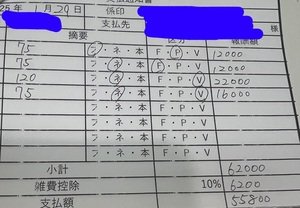 25年 1月29日 係印
支払先
摘要 区分 報酬額
75 ラ・ネ・本 F・P・V 12000
75 ラ・ネ・本 F・P・V 12000
120 ラ・ネ・本 F・P・V 22000
75 ラ・ネ・本 F・P・V 16000
ラ・ネ・本 F・P・V
ラ・ネ・本 F・P・V
ラ・ネ・本 F・P・V
小計 62000
雑費控除 10% 6200
支払額 55800